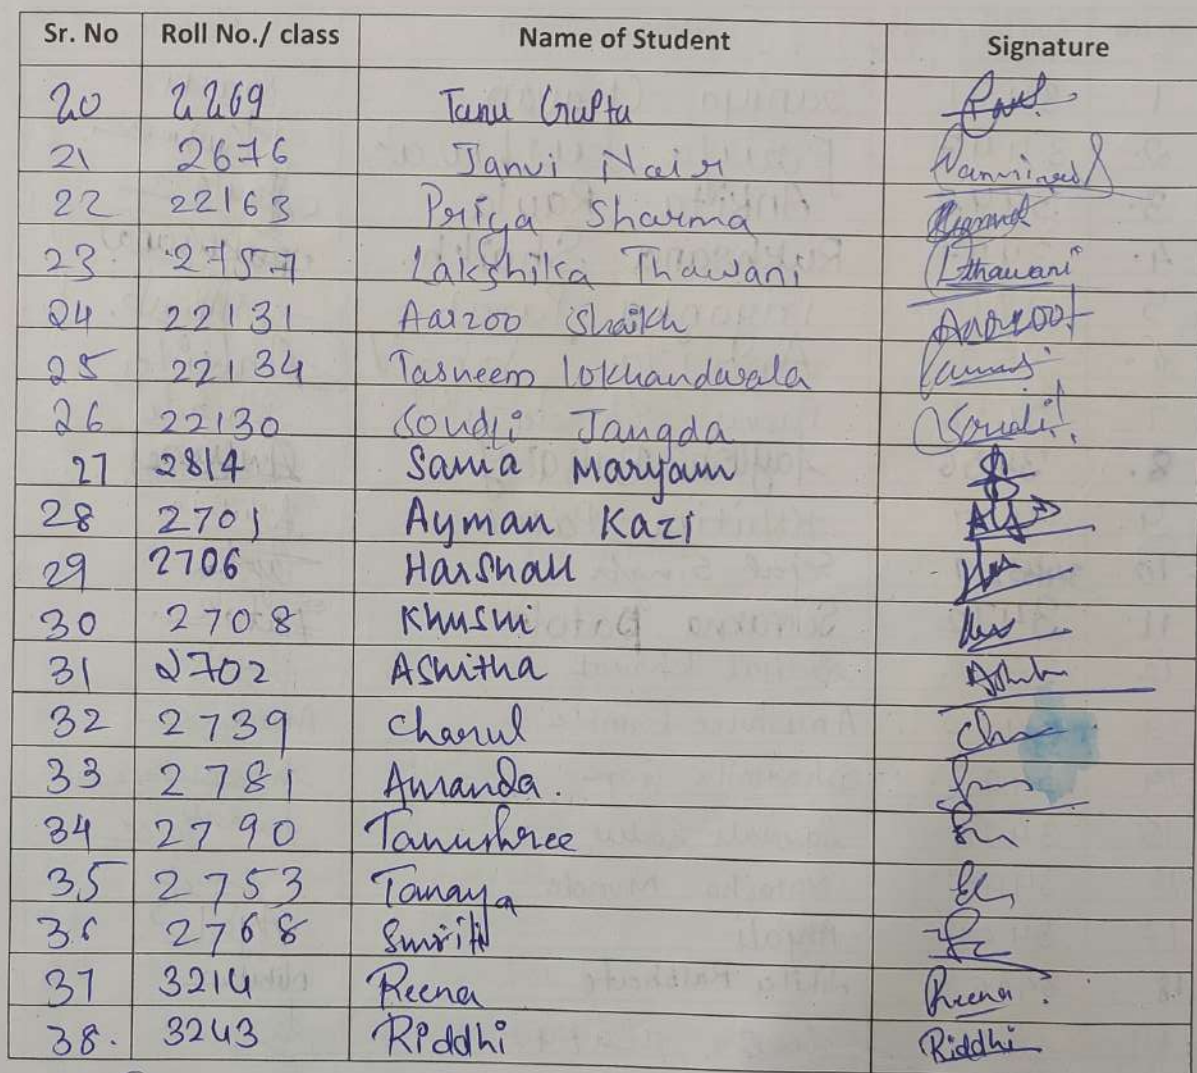 Sr. No Roll No./ class Name of Student Signature
20 2269 Tanu Gupta
21 2676 Janvi Nair
22 22163 Priya Sharma
23 2757 Lakshika Thawani Lthawani
24 22131 Aarzoo Shaikh Aarzoo
25 22134 Tasneem lokhandwala
26 22130 Jangda
27 2814 Sania Maryam
28 2701 Ayman Kazi
29 2706 Harshali
30 2708 Khushi
31 2702 Ashitha
32 2739 Charul
33 2781 Amanda.
34 2790 Tanushree
35 2753 Tanaya
36 2768 Smriti
37 3214 Reena Reena.
38. 3243 Riddhi Riddhi